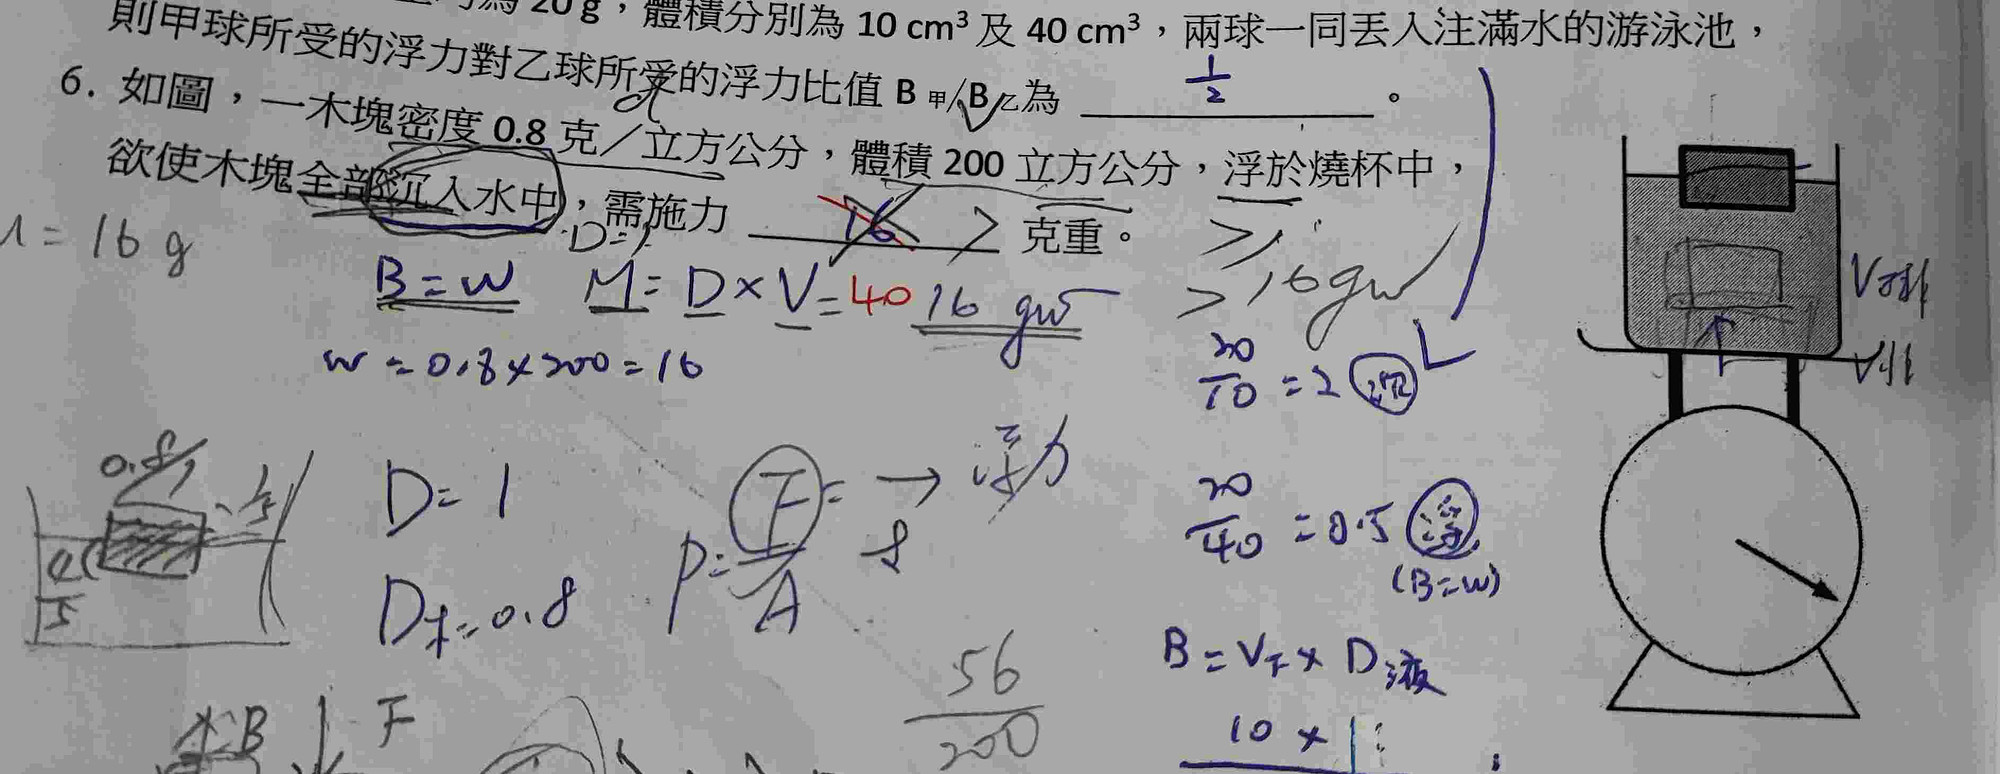 為 20 g，體積分別為 10 cm³ 及 40 cm³，兩球一同丟入注滿水的游泳池，
則甲球所受的浮力對乙球所受的浮力比值 B 甲/B 乙為 1/2 。
6. 如圖，一木塊密度 0.8 克／立方公分，體積 200 立方公分，浮於燒杯中，
欲使木塊全部沉入水中，需施力 16 > 克重。
= 16 g
D=1
B = W M = D × V = 40 16 gw
> 16 gw
W = 0.8 × 200 = 16
20/10 = 2 沉
V排
0.8/1
D = 1
P = F/A
→ 浮力
20/40 = 0.5 浮
(B=W)
4/5
1/5
D木=0.8
B = V下 × D液
56/200
10 × 1
B
F